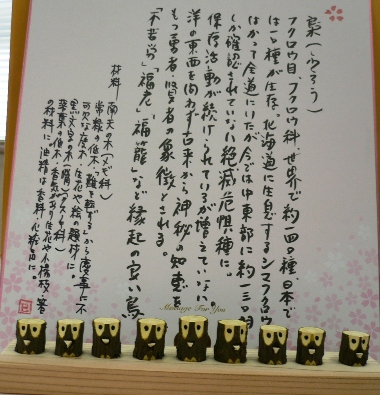 梟(ふくろう)
フクロウ目、フクロウ科、世界で約一四〇種、日本で
は一一種が生存。北海道に生息するシマフクロウ
はかつて全道にいたが今では中東部に約一三〇羽
しか確認されていない絶滅危惧種に。
保存活動が続けられているが増えていない。
洋の東西を問わず古来から神秘の知恵を
もつ勇者・賢者の象徴とされる。
「不苦労」「福老」「福籠」など縁起の良い鳥
材料 南天の木(メギ科)
常緑の低木、難を転ずるから慶事に不
可欠な庭木、生花や絵の題材に。
黒文字の木
葉の低木、香気があり生花や小楊枝、箸
の材料に 油は香料・化粧品に。
Message For You